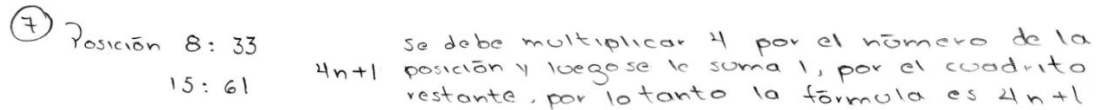 7 Posición 8: 33
15: 61
4n+1
se debe multiplicar 4 por el número de la
posición y luego se le suma 1, por el cuadrito
restante, por lo tanto la fórmula es 4n+1